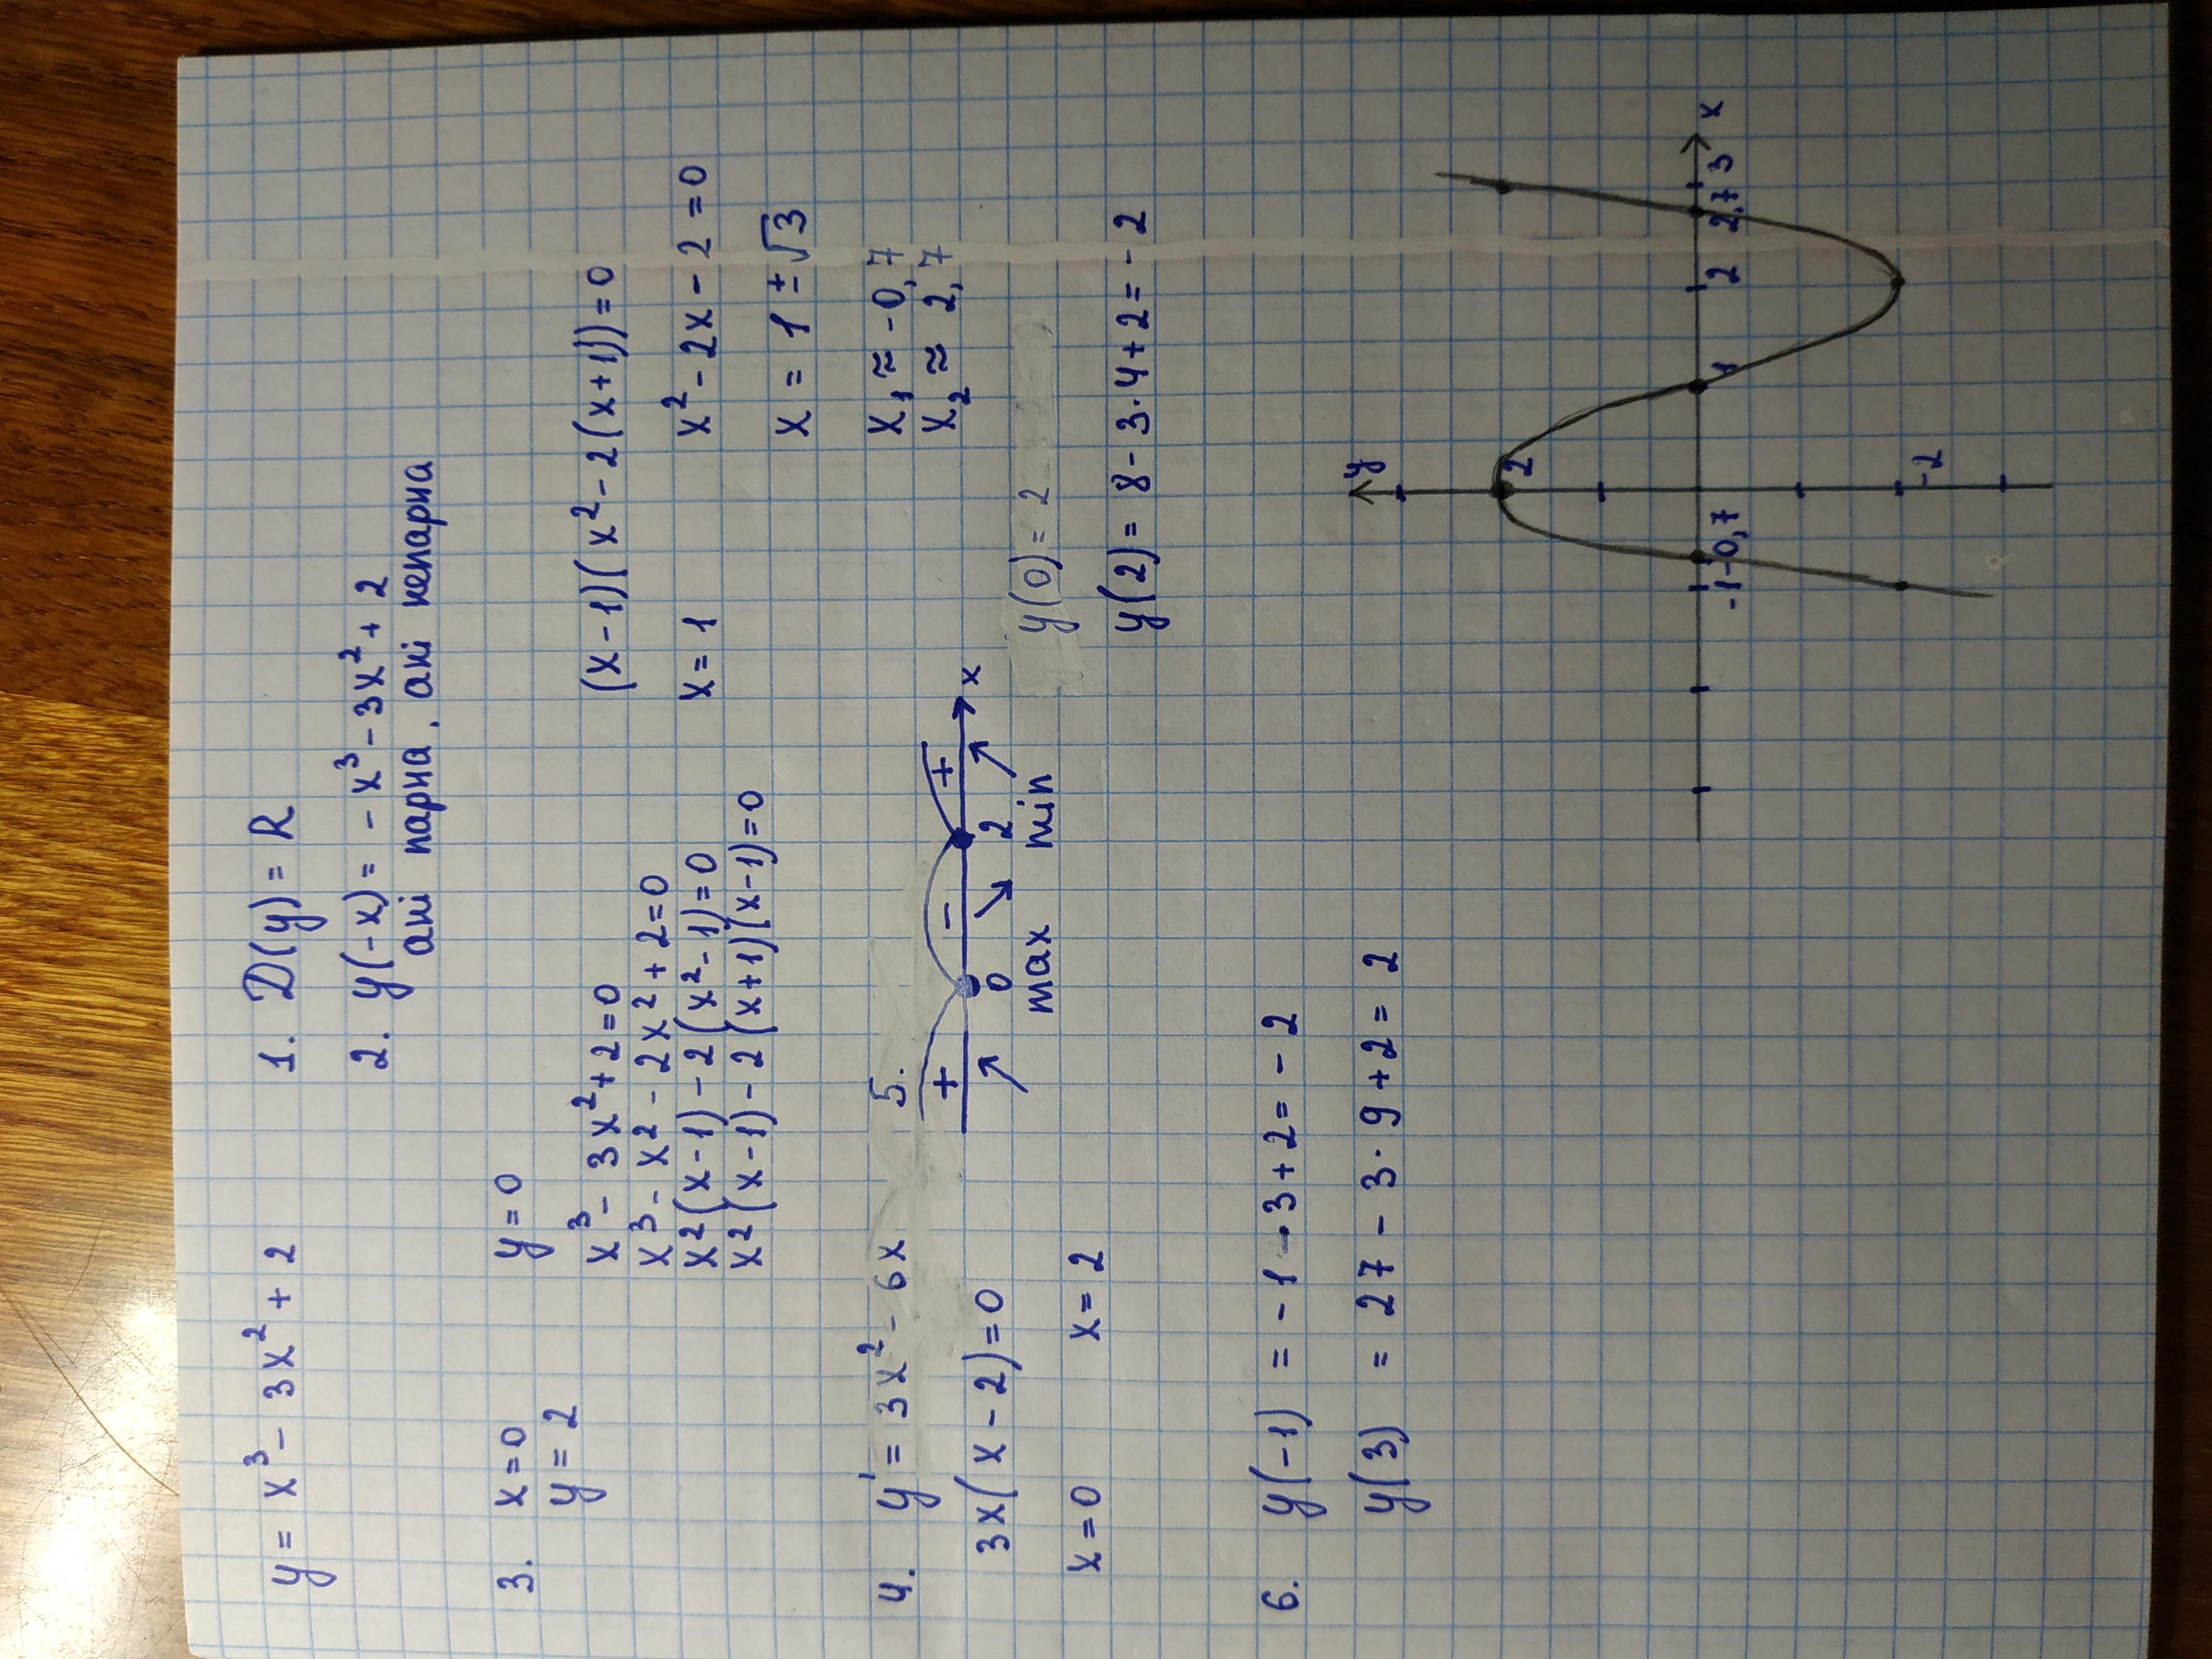 y = x³ - 3x² + 2
1. D(y) = R
2. y(-x) = - x³ - 3x² + 2
ані парна, ані непарна
3. x = 0
y = 2
y = 0
x³ - 3x² + 2 = 0
x³ - x2 - 2x² + 2 = 0
x²(x - 1) - 2(x² - 1) = 0
x²(x - 1) - 2(x + 1)(x - 1) = 0
(x - 1)(x² - 2(x + 1)) = 0
x = 1
x² - 2x - 2 = 0
x = 1 ± √3
x₁ ≈ -0,7
x₂ ≈ 2,7
4. y' = 3x² - 6x
3x(x - 2) = 0
x = 0 x = 2
5.
+ - + x
0 2
max min
y(0) = 2
y(2) = 8 - 3·4 + 2 = - 2
6. y(-1) = - 1 - 3 + 2 = - 2
y(3) = 27 - 3·9 + 2 = 2
y
2
-1 -0,7 1 2 2,7 3 x
-2